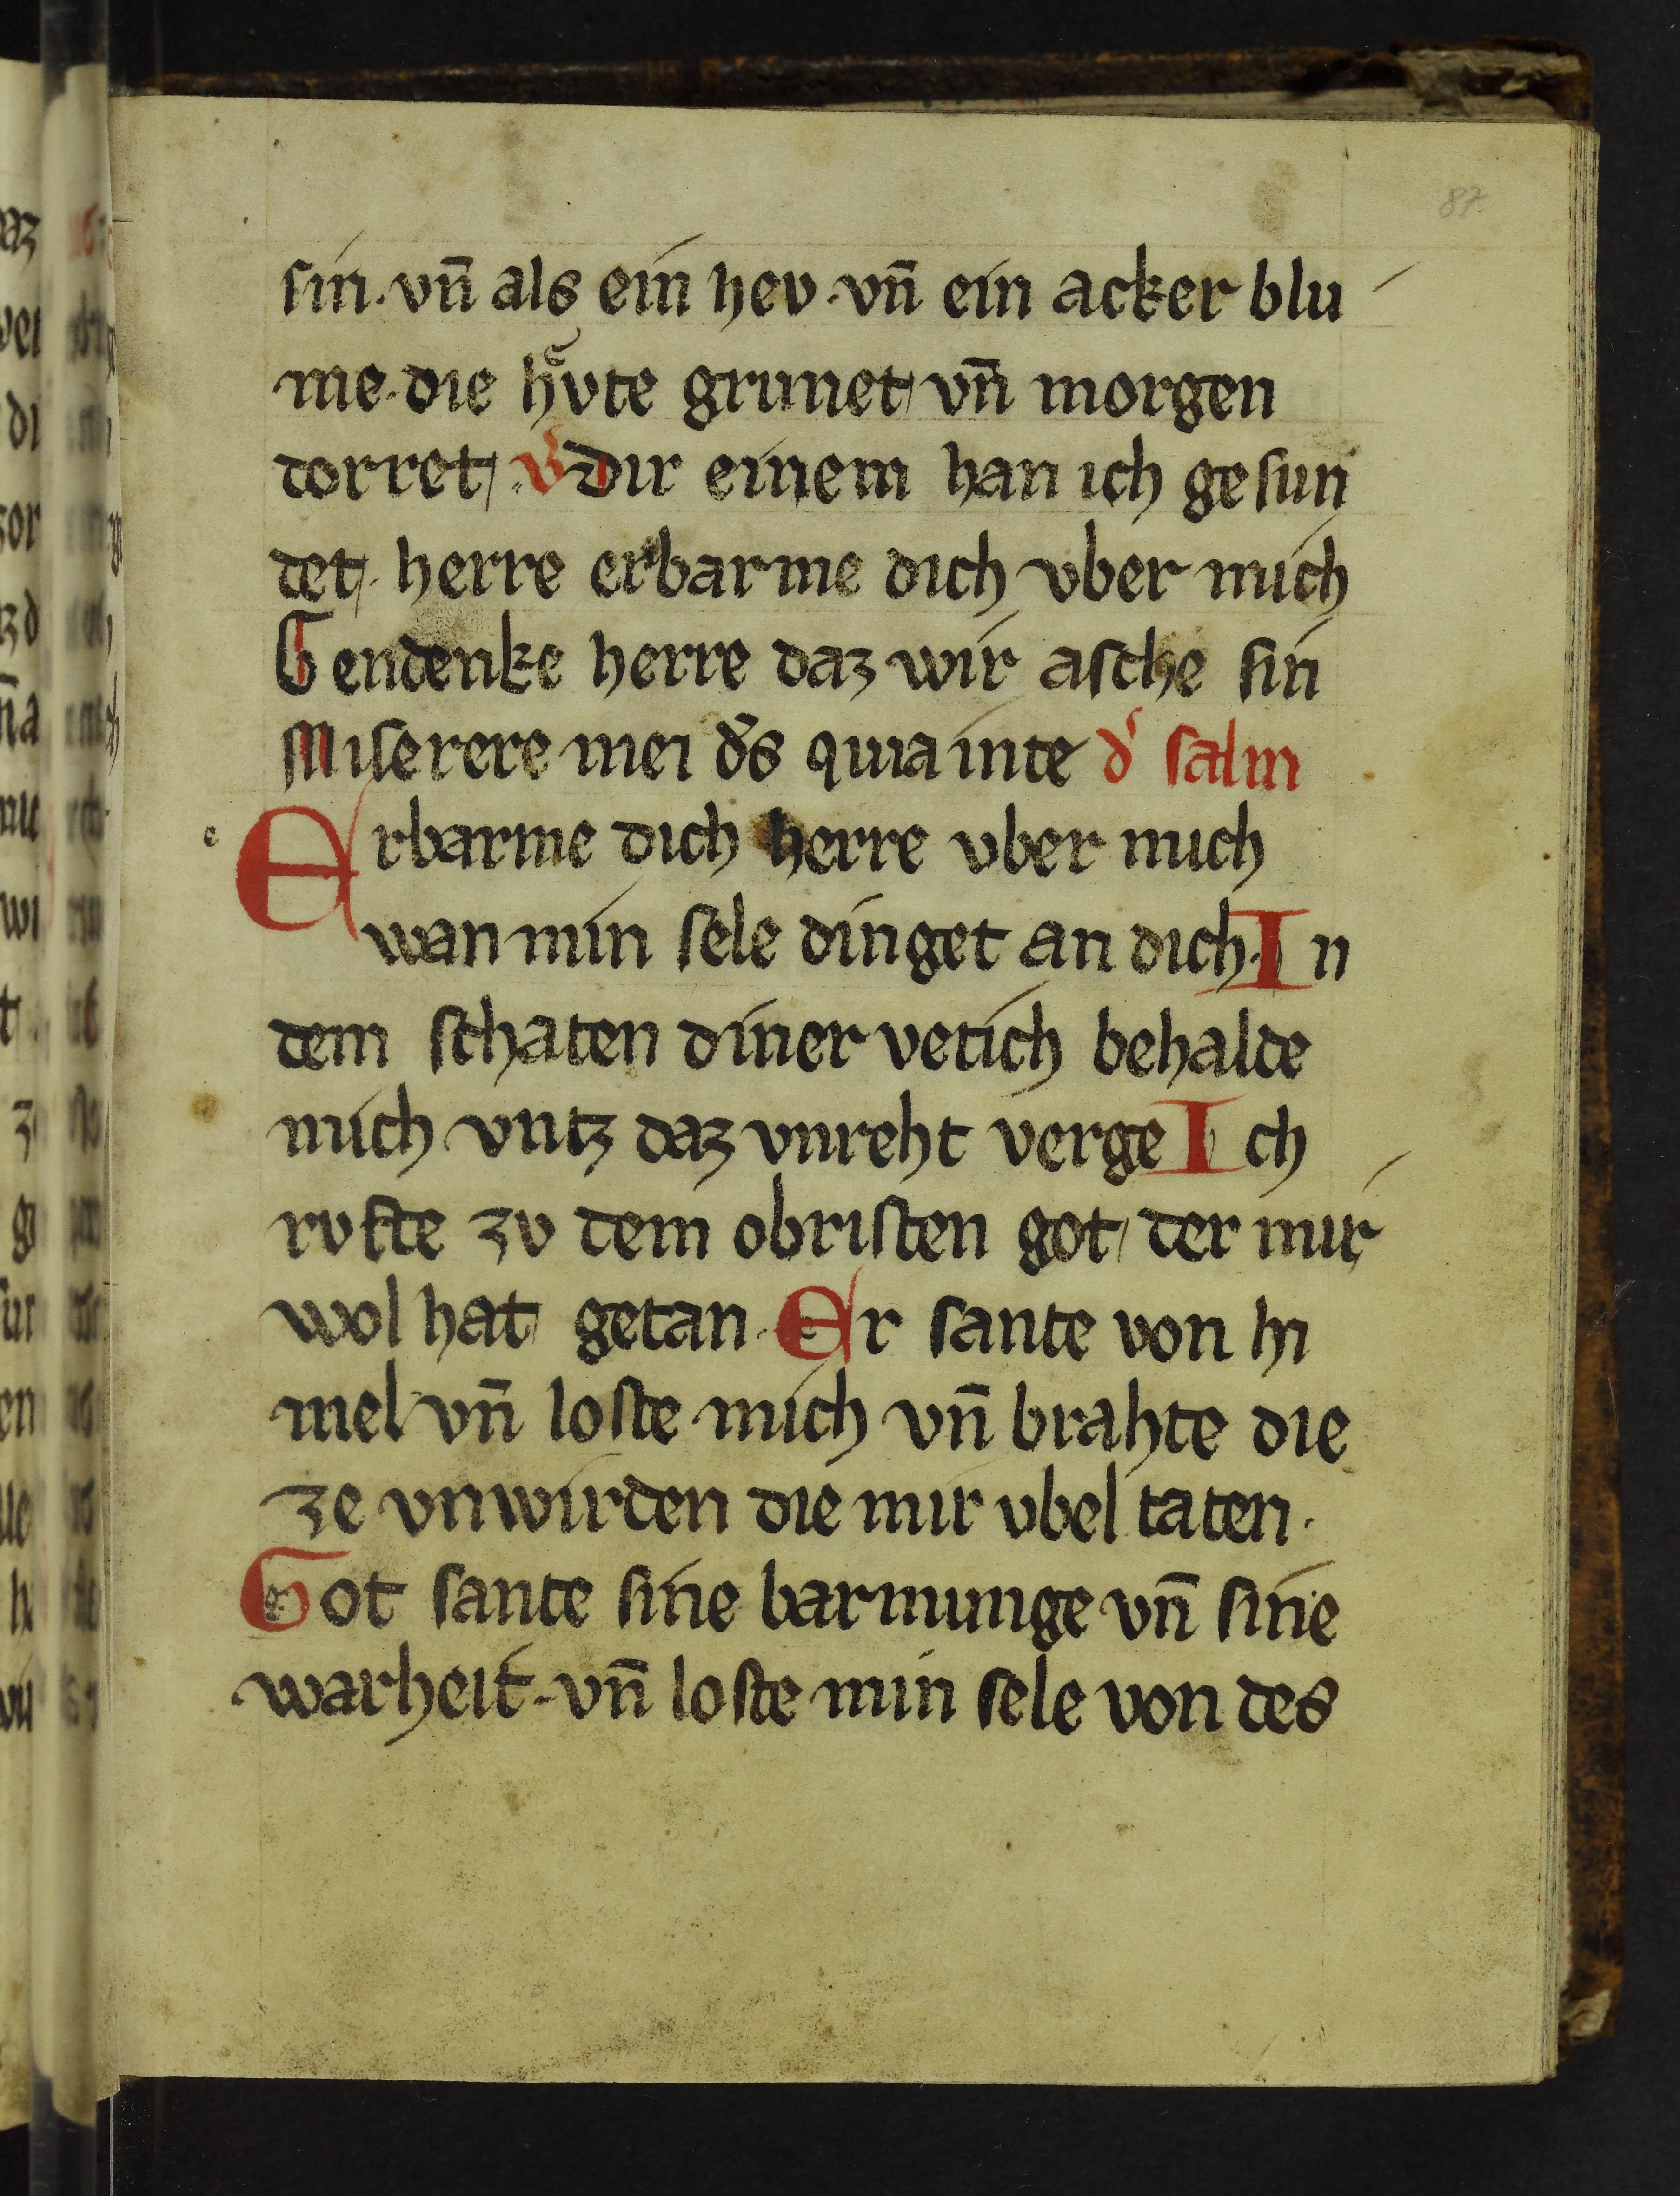 87
sin. vn̄ als ein hev. vn̄ ein acker blu
me. die hv̊te grunet vn̄ morgen
dorret. v̾ dir einem han ich gesun
det. herre erbarme dich vber mich
Gendenke herre daz wir asche sin
Miserere mei d̾s quia inte d̾ salm
Erbarme dich herre vber mich
wan min sele dinget an dich. In
dem schaten diner vetich behalde
mich vntz daz vnreht verge Ich
rvfte zv dem obristen got der mir
wol hat getan. Er sante von hi
mel vn̄ loste mich vn̄ brahte die
ze vnwirden die mir vbel taten.
Got sante sine barmunge vn̄ sine
warheit. vn̄ loste min sele von des